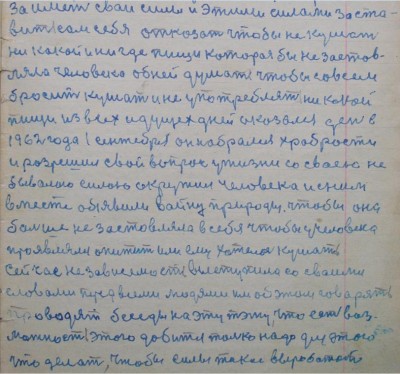 заимет сваи сили и этими силами заста
вит сам себя отказат чтобы не кушат
ни какой и нигде пищи которая бы не застов
ляла человека обней думат чтобы совсем
бросит кушат и не употреблят ни какой
пищи из всех идущех дней оказолся ден в
1962 года 1 сентебря он набрался храбрости
и разрешил свой вопрос ужизни со сваею не
бывалою силою окружил человека и с ним
вместе обявили вайну природу. чтобы она
балше не застовляла в себя чтобы учеловека
проявлялся опитит или ему хотелос кушат
сейчас независемость выступила со сваими
словами перд всеми людями им об этом говарят
проводят беседы на эту тэму, что есть воз
можност этого добится толко надо для этого
что делат, чтобы силы такие выработат